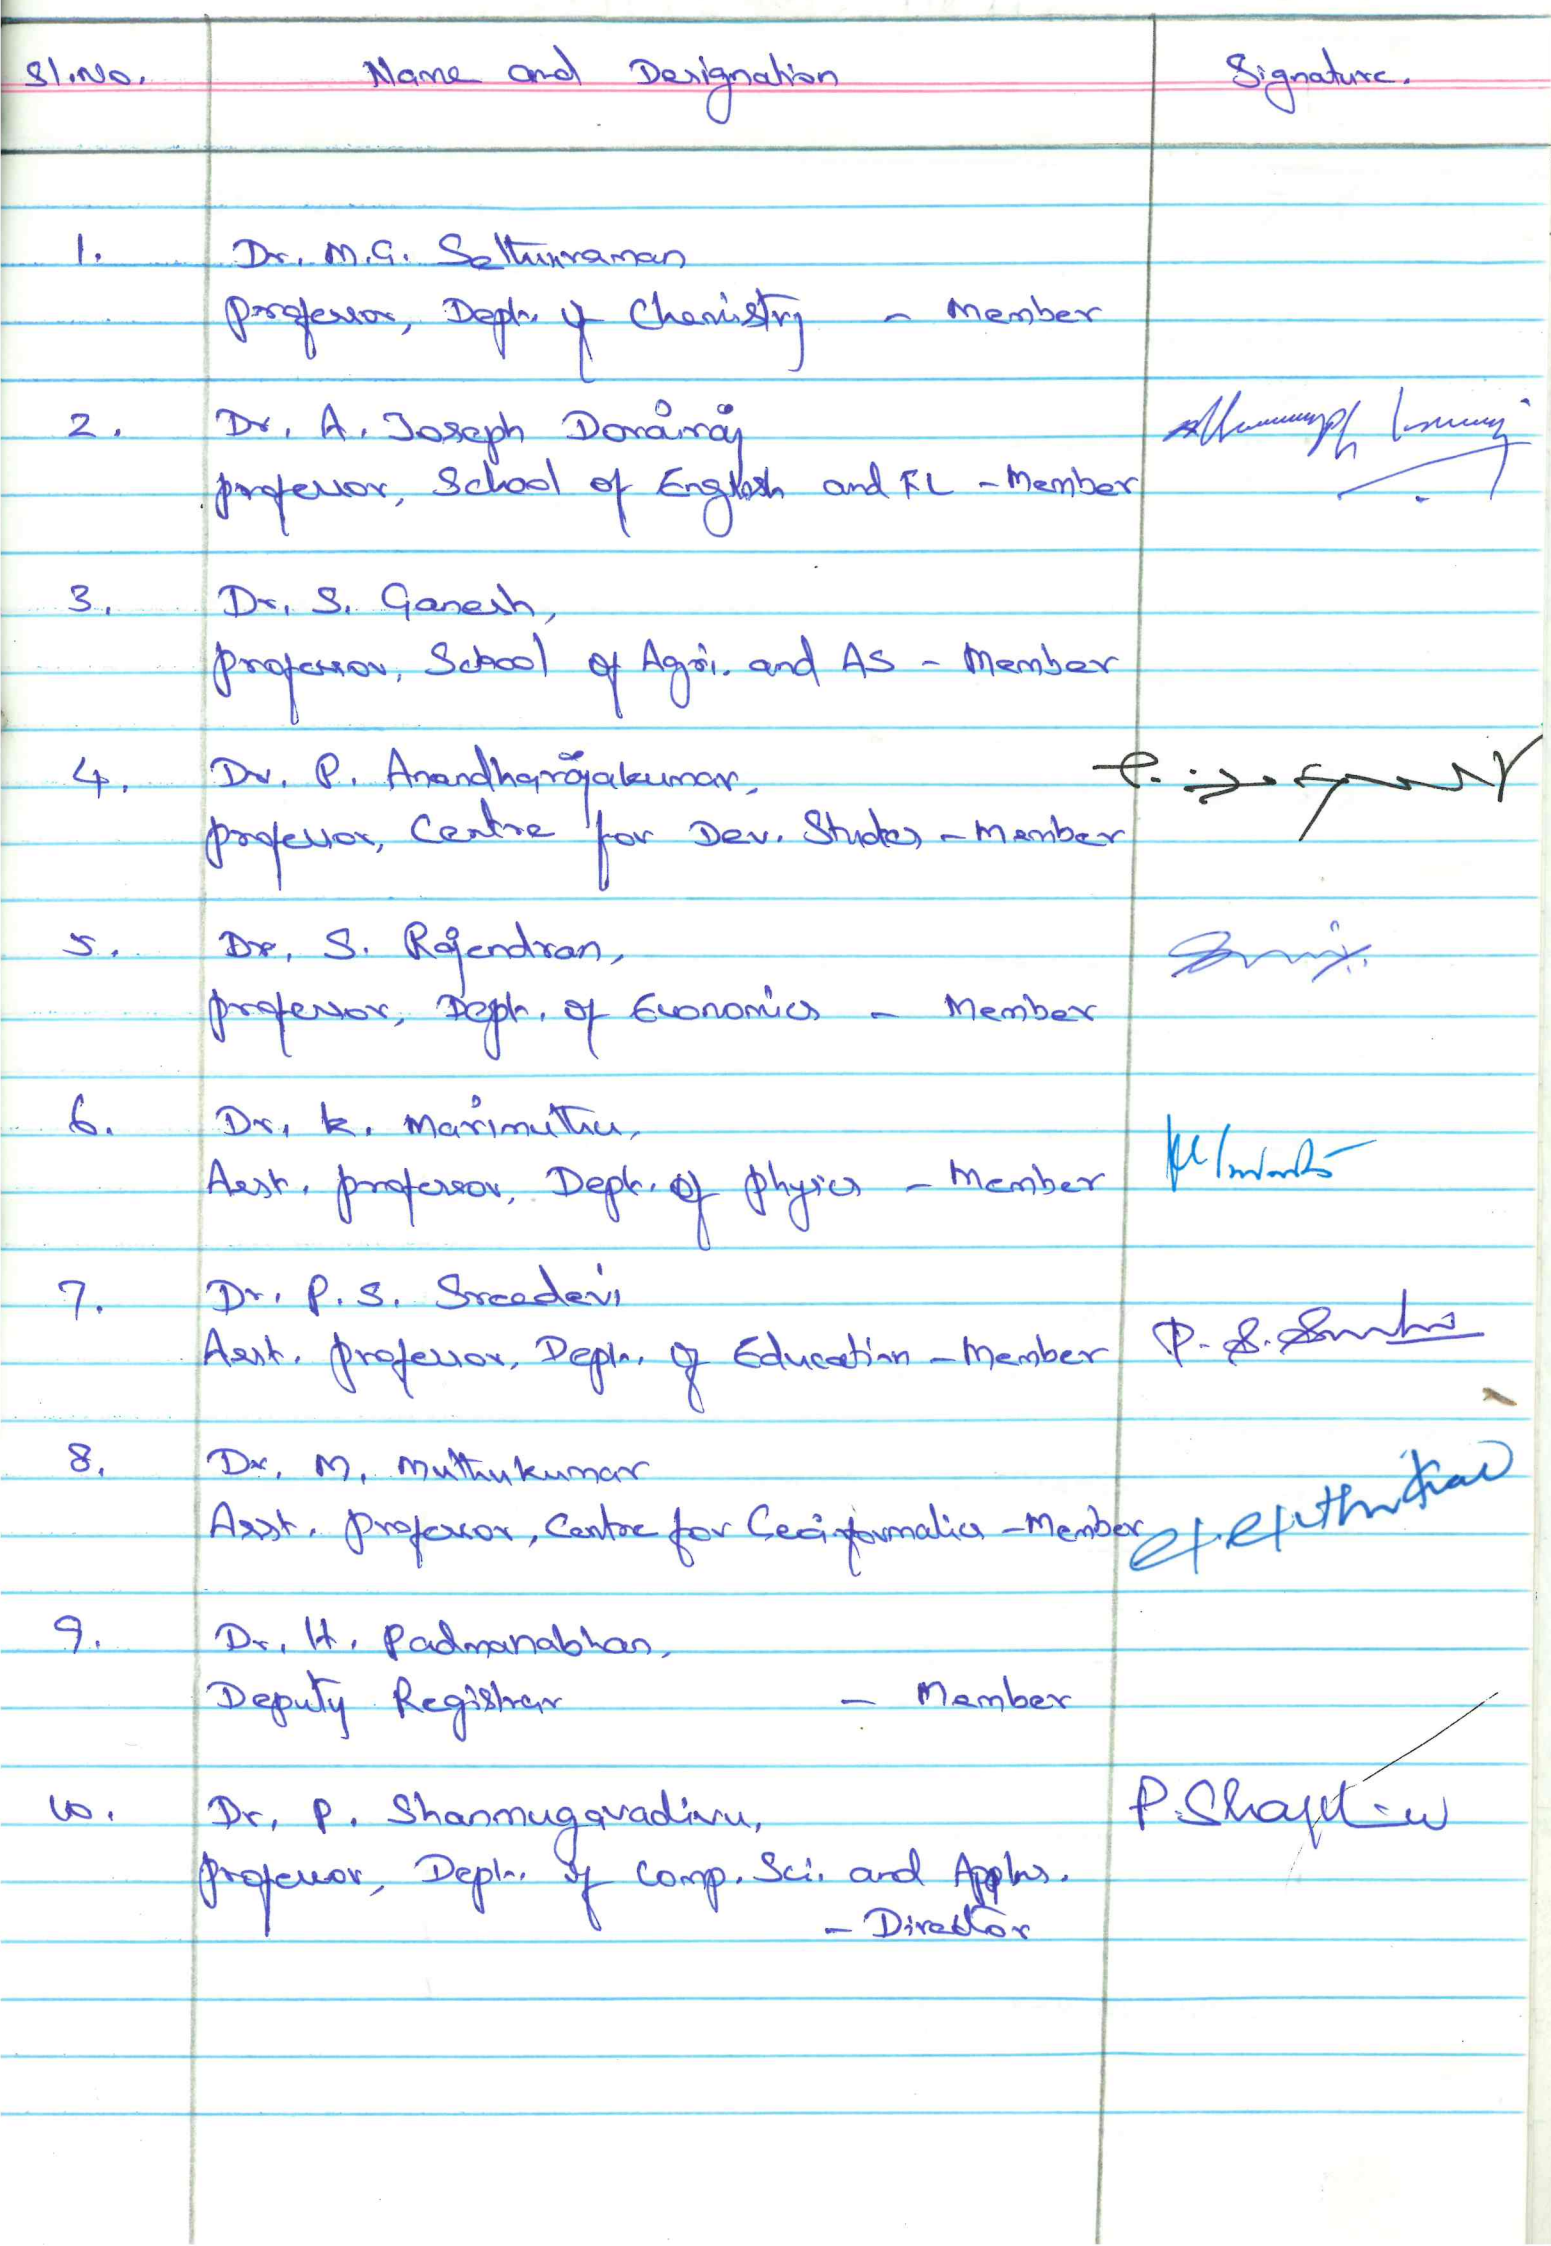 Sl.No. Name and Designation Signature.
1. Dr. M.G. Sethuraman
Professor, Dept. of Chemistry - Member
2. Dr. A. Joseph Dorairaj
Professor, School of English and FL - Member
3. Dr. S. Ganesh,
Professor, School of Agri. and AS - Member
4. Dr. P. Anandharajakumar,
Professor, Centre for Dev. Studies - Member
5. Dr. S. Rajendran,
Professor, Dept. of Economics - Member
6. Dr. K. Marimuthu,
Asst. Professor, Dept. of Physics - Member
7. Dr. P.S. Sreedevi
Asst. Professor, Dept. of Education - Member P. S.
8. Dr. M. Muthukumar
Asst. Professor, Centre for Geoinformatics - Member
9. Dr. H. Padmanabhan,
Deputy Registrar - Member
10. Dr. P. Shanmugavadivu, P.
Professor, Dept. of Comp. Sci. and Applns.
- Director